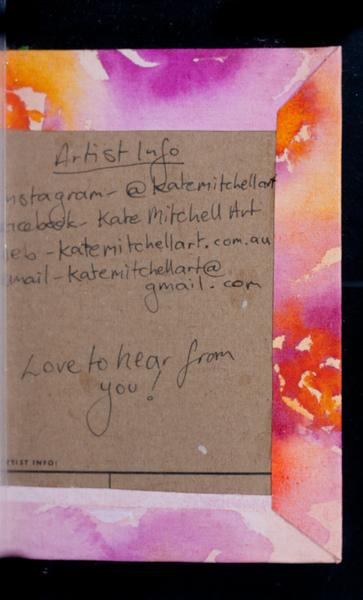 Artist Info
nstagram- @katemitchellart
cebook- Kate Mitchell Art
eb -katemitchellart.com.au
mail-katemitchellart@
gmail.com
Love to hear from
you!
TIST INFO: